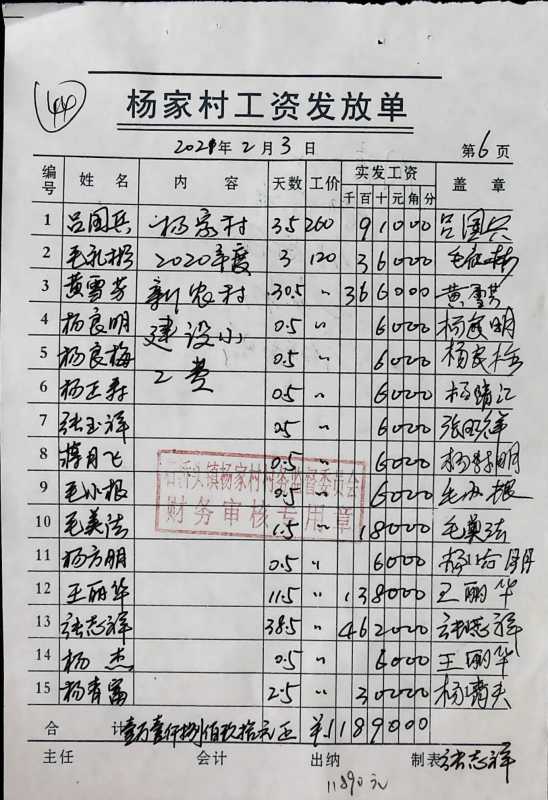 44
杨家村工资发放单
2021年2月3日 第6页
编号 姓名 内容 天数 工价 实发工资 盖章
千百十元角分
1 吕国兵 杨家村 3.5 260 91000 吕国兵
2 毛礼彬 2020年度 3 120 36000
3 黄雪芬 新农村 30.5 〃 366000 黄雪芬
4 杨良明 建设小 0.5 〃 6000 杨良明
5 杨良梅 工费 0.5 〃 6000 杨良梅
6 杨正 0.5 〃 6000 杨
7 张玉祥 0.5 〃 6000 张玉祥
8 蒋月飞 0.5 〃 6000 杨 明
9 毛小根 0.5 〃 6000 毛小根
10 毛美法 1.5 〃 18000 毛美法
11 杨方明 0.5 〃 6000 杨方明
12 王丽华 11.5 〃 138000 王丽华
13 张志祥 38.5 〃 462000 张志祥
14 杨杰 0.5 〃 6000 王丽华
15 杨青富 2.5 〃 30000 杨
石桥头镇杨家村村务监督委员会
财务审核专用章
合计 壹万壹仟捌佰玖拾元正 ¥1189000
主任 会计 出纳 制表 张志祥
11890元